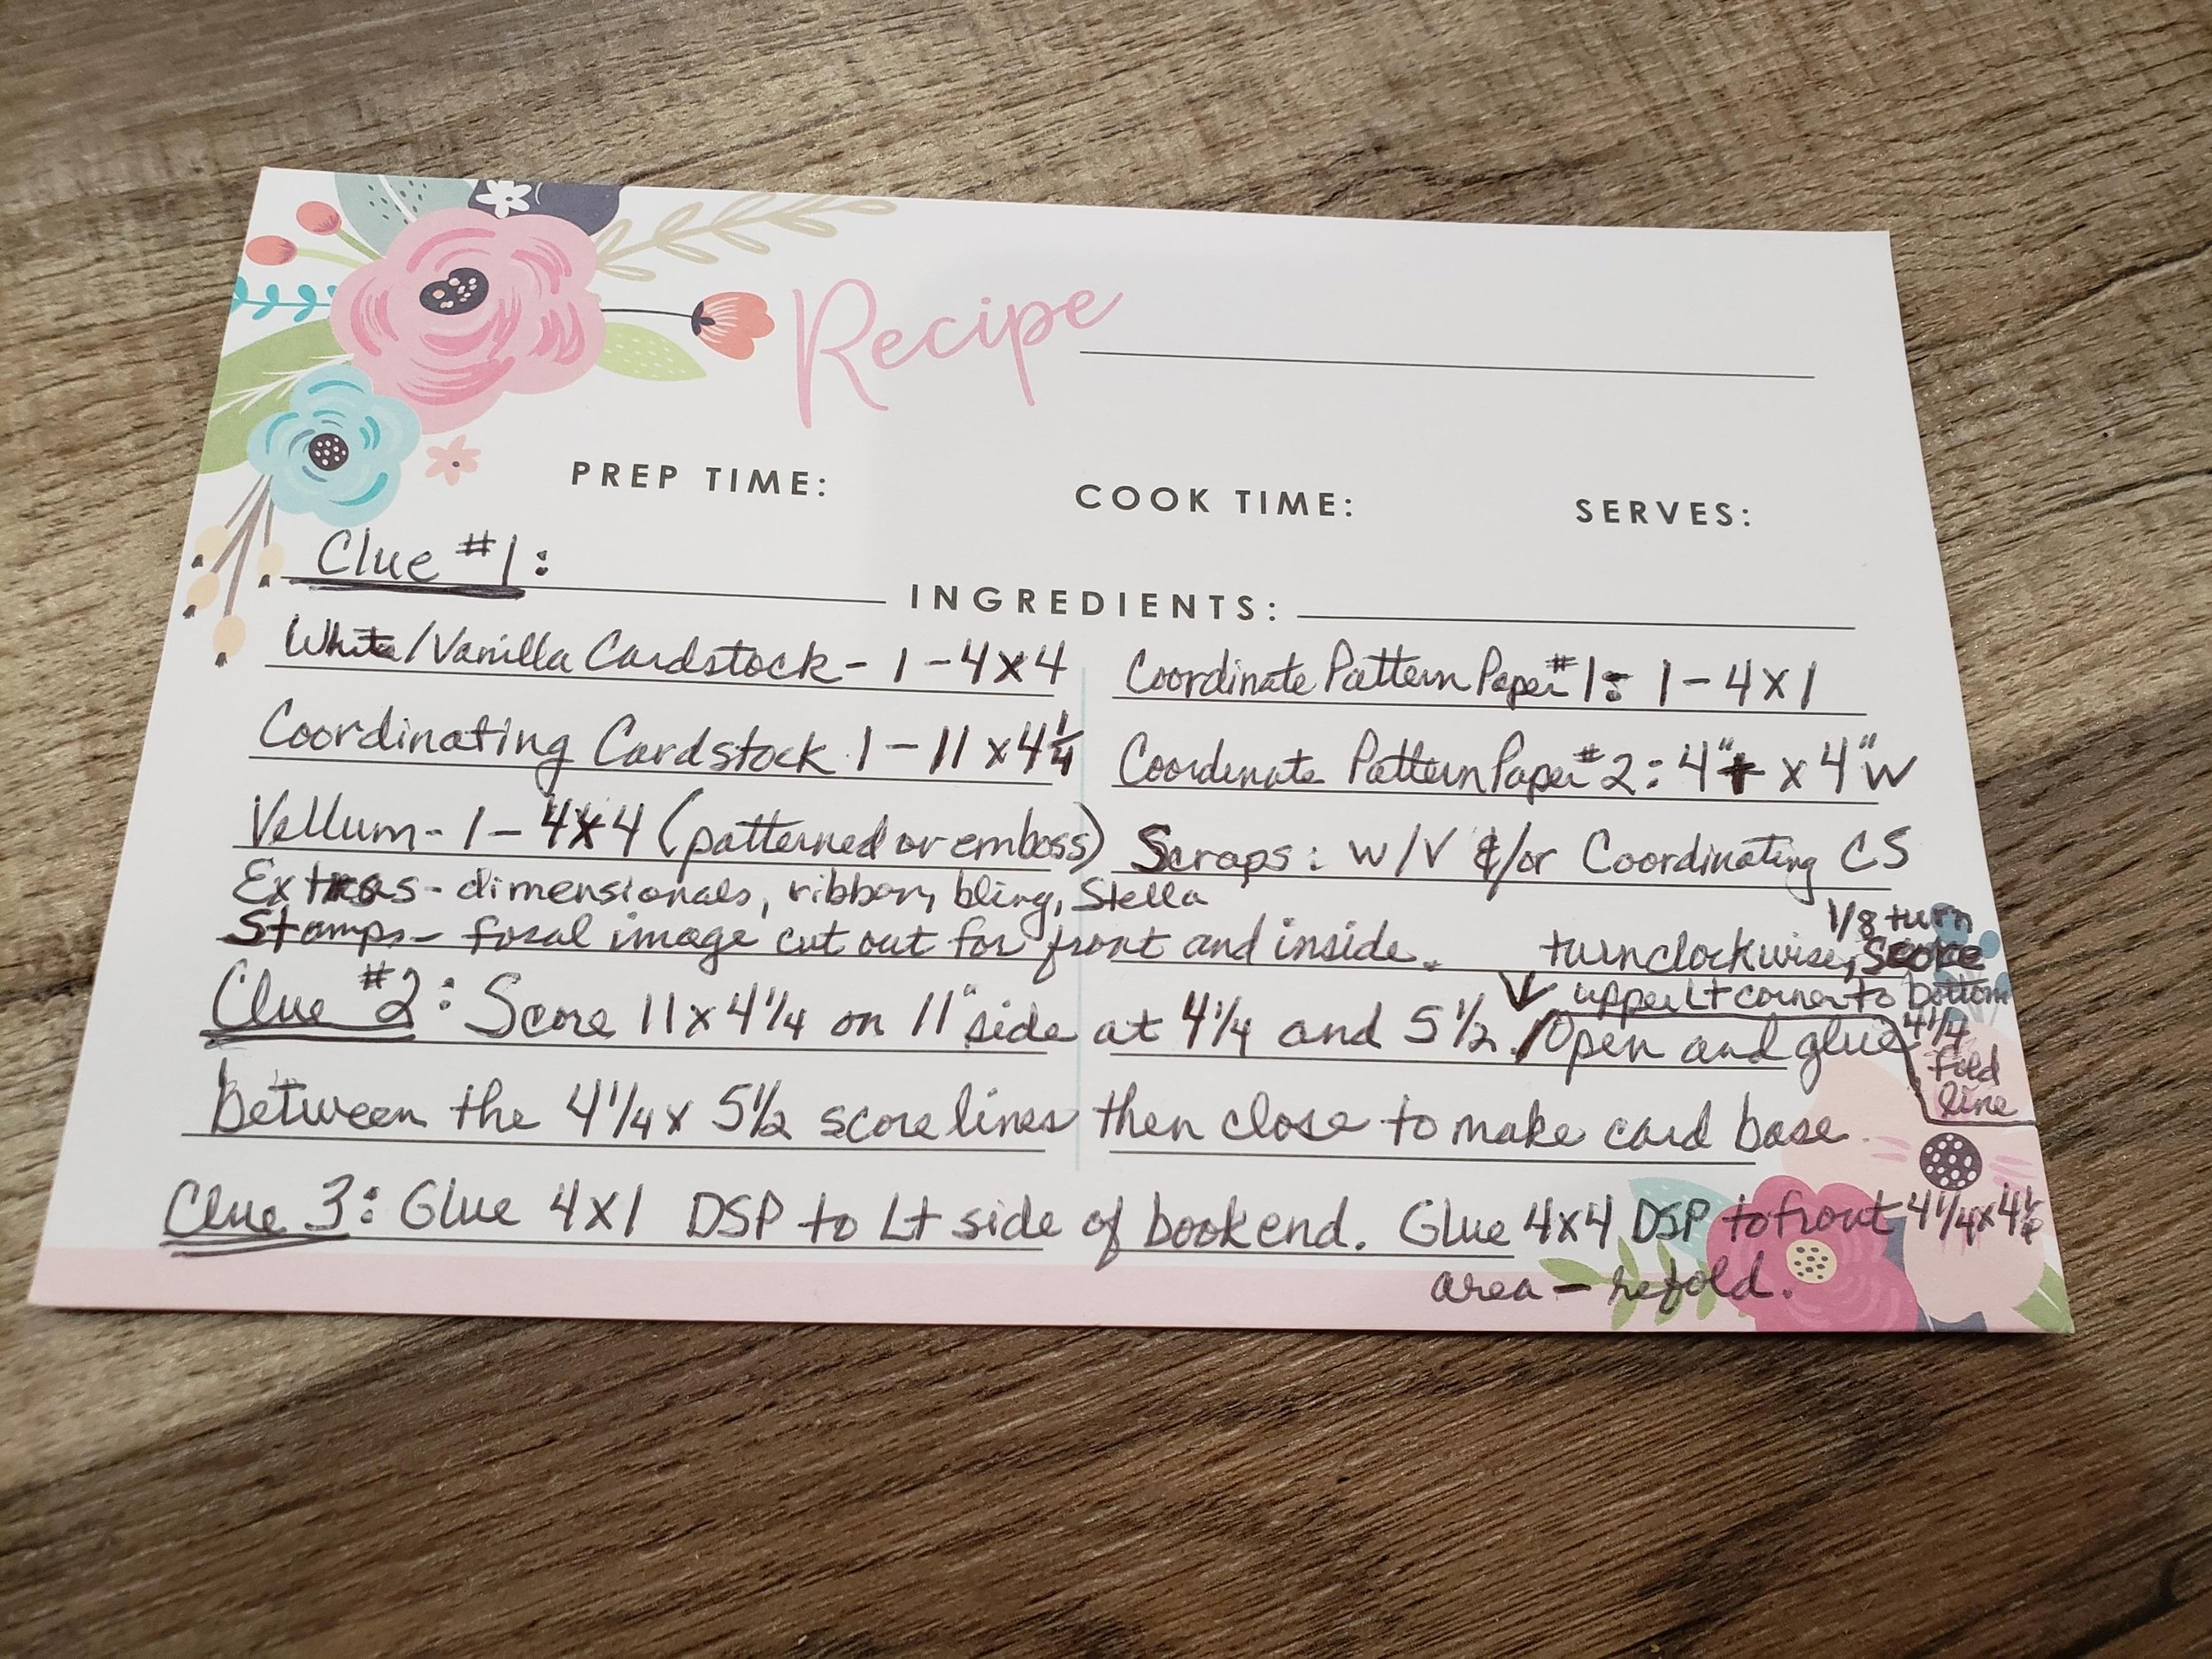 Recipe
PREP TIME: COOK TIME: SERVES:
Clue #1:
INGREDIENTS:
White/Vanilla Cardstock - 1 - 4x4
Coordinating Cardstock 1 - 11 x 4 1/4
Vellum - 1 - 4x4 (patterned or emboss)
Coordinate Pattern Paper #1: 1 - 4x1
Coordenate Pattern Paper #2: 4" x 4" w
Scraps: w/V &/or Coordinating CS
Extras - dimensionals, ribbon, bling, Stella
Stamps - focal image cut out for front and inside.
Clue #2: Score 11x4 1/4 on 11" side at 4 1/4 and 5 1/2. / Open and glue
1/8 turn
turn clockwise, score
upper Lt corner to bottom
4 1/4
fold
line
between the 4 1/4 x 5 1/2 score lines then close to make card base.
Clue 3: Glue 4x1 DSP to Lt side of book end. Glue 4x4 DSP to front 4 1/4 x
area - refold.